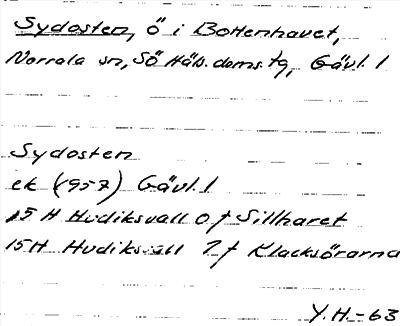 Sydosten, ö i Bottenhavet,
Norrala sn, Sö Häls. doms. tg, Gävl. l
Sydosten
ek (1957) Gävl. l
15 H Hudiksvall 0 f Sillharet
15 H Hudiksvall 7 f Klacksörarna
Y.H.-63